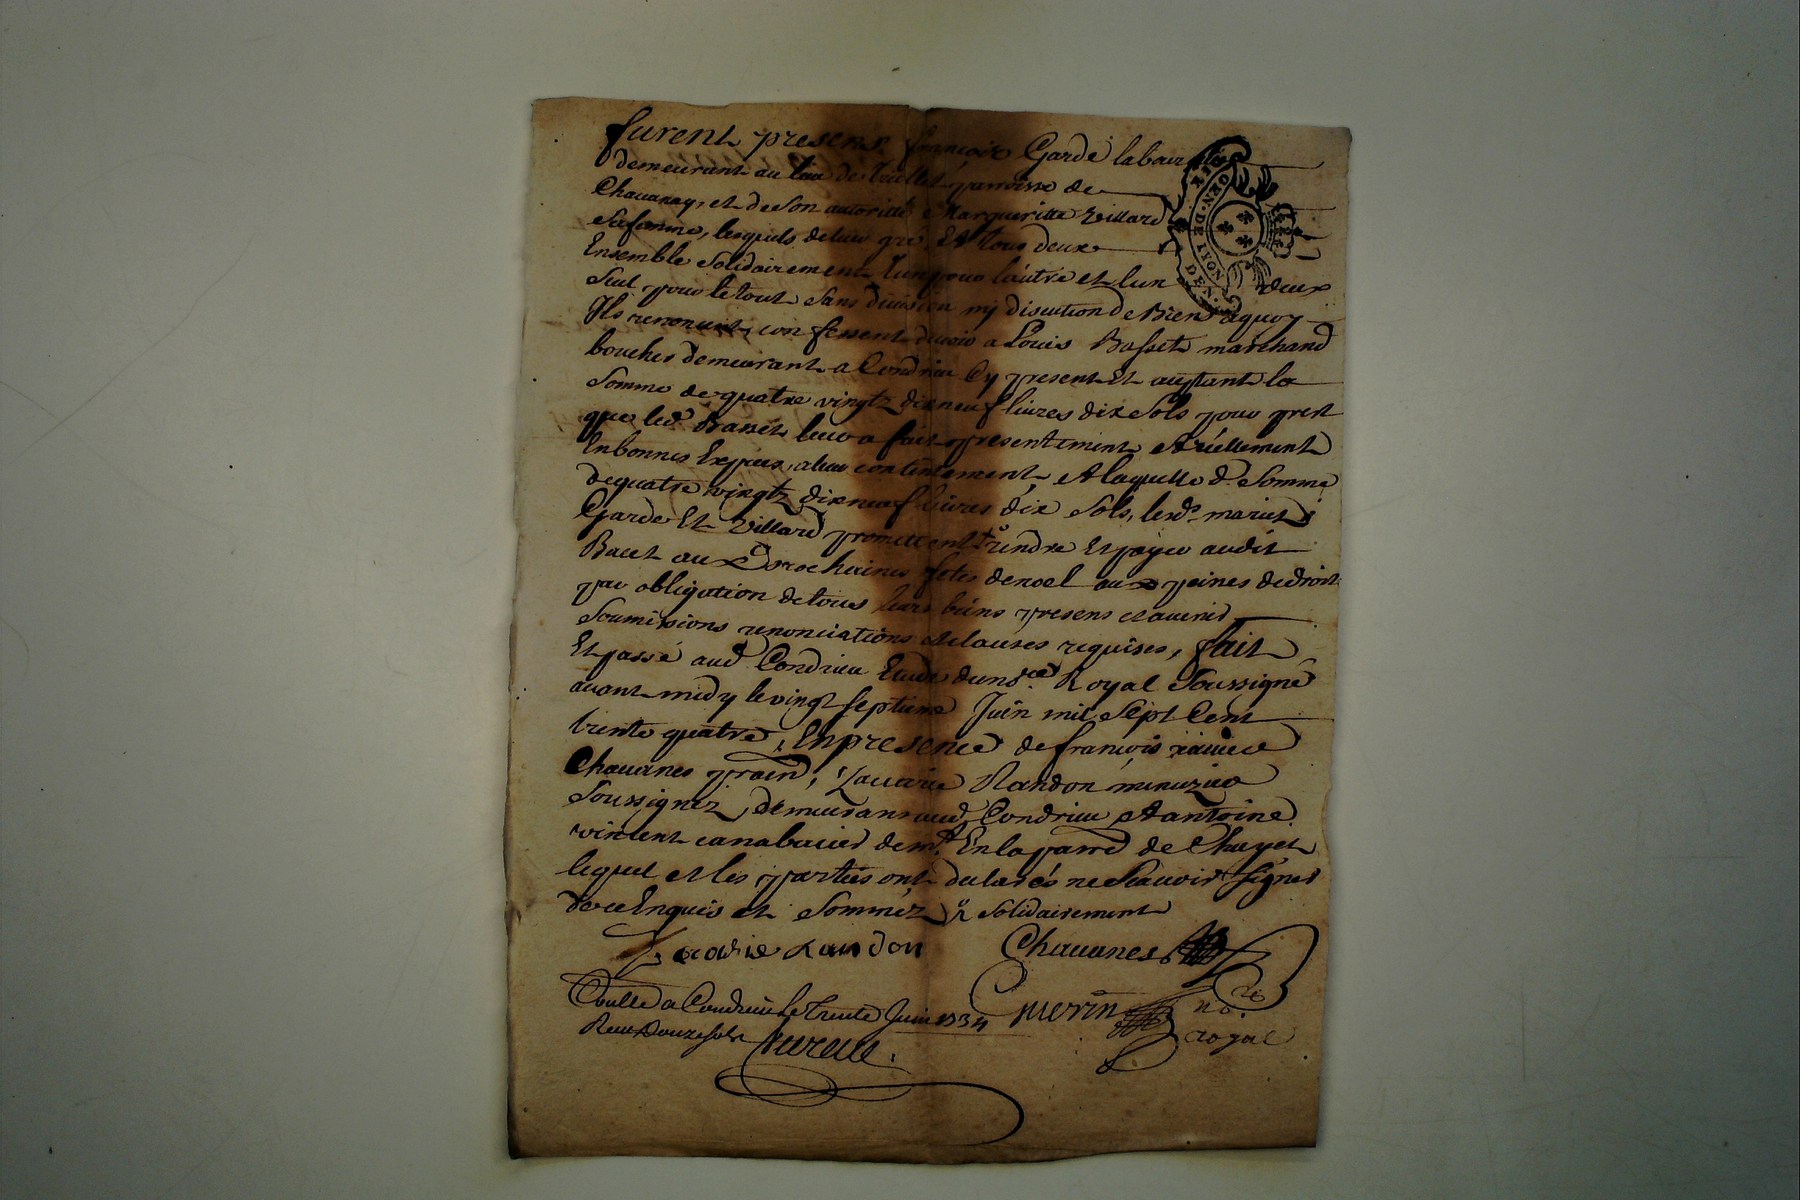 furent presens françois Garde laboureur
demeurant au lieu de parroisse de
Chauanay, et de son autoritté Margueritte Villard
sa femme, lesquels de leur gré Et tous deux
Ensemble solidairement lun pour lautre et lun deux
seul pour le tout sans division ny discution de Bien aquoy
Ils renoncent, confessent devoir a Louis Basset marchand
boucher demeurant a Condrieu Cy present Et aceptant la
somme de quatre vingtz dix neuf livres dix sols pour prest
que led Basset leur a fait presentement et réellement
En bonnes Espèces, a leur contentement, et laquelle d somme
de quatre vingtz dix neuf livres dix sols, lesds mariets
Garde Et Villard promettent rendre Et payer audit
Bacet aux prochaines fetes de noel aux peines de droit
par obligation de tous leurs biens presens et avenir
soumissions renonciations et clauses requises, fait
Et passé aud Condrieu Etude du nore Royal soussigné
avant midy le vingt septieme Juin mil sept Cent
trente quatre, En presence de françois
Chauanes prain, Zacarie Randon menuzier
soussignez, demeurans aud Condrieu et antoine
vincent canabacier demt En la parre de Chuyet
lequel et les parties ont declarés ne scauoir signer
de ce Enquis et sommez solidairement
Zacarie Randon Chauanes
Guerin nore
royal
Conllé a Condrieu le trente Juin 1734
Reçu Douze sols
GEN. DE LYON